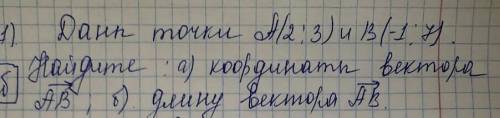 1) Данн точки A(2;3) и B(-1;7).
б Найдите: а) координатн вектора
AB, б). длину вектора AB.